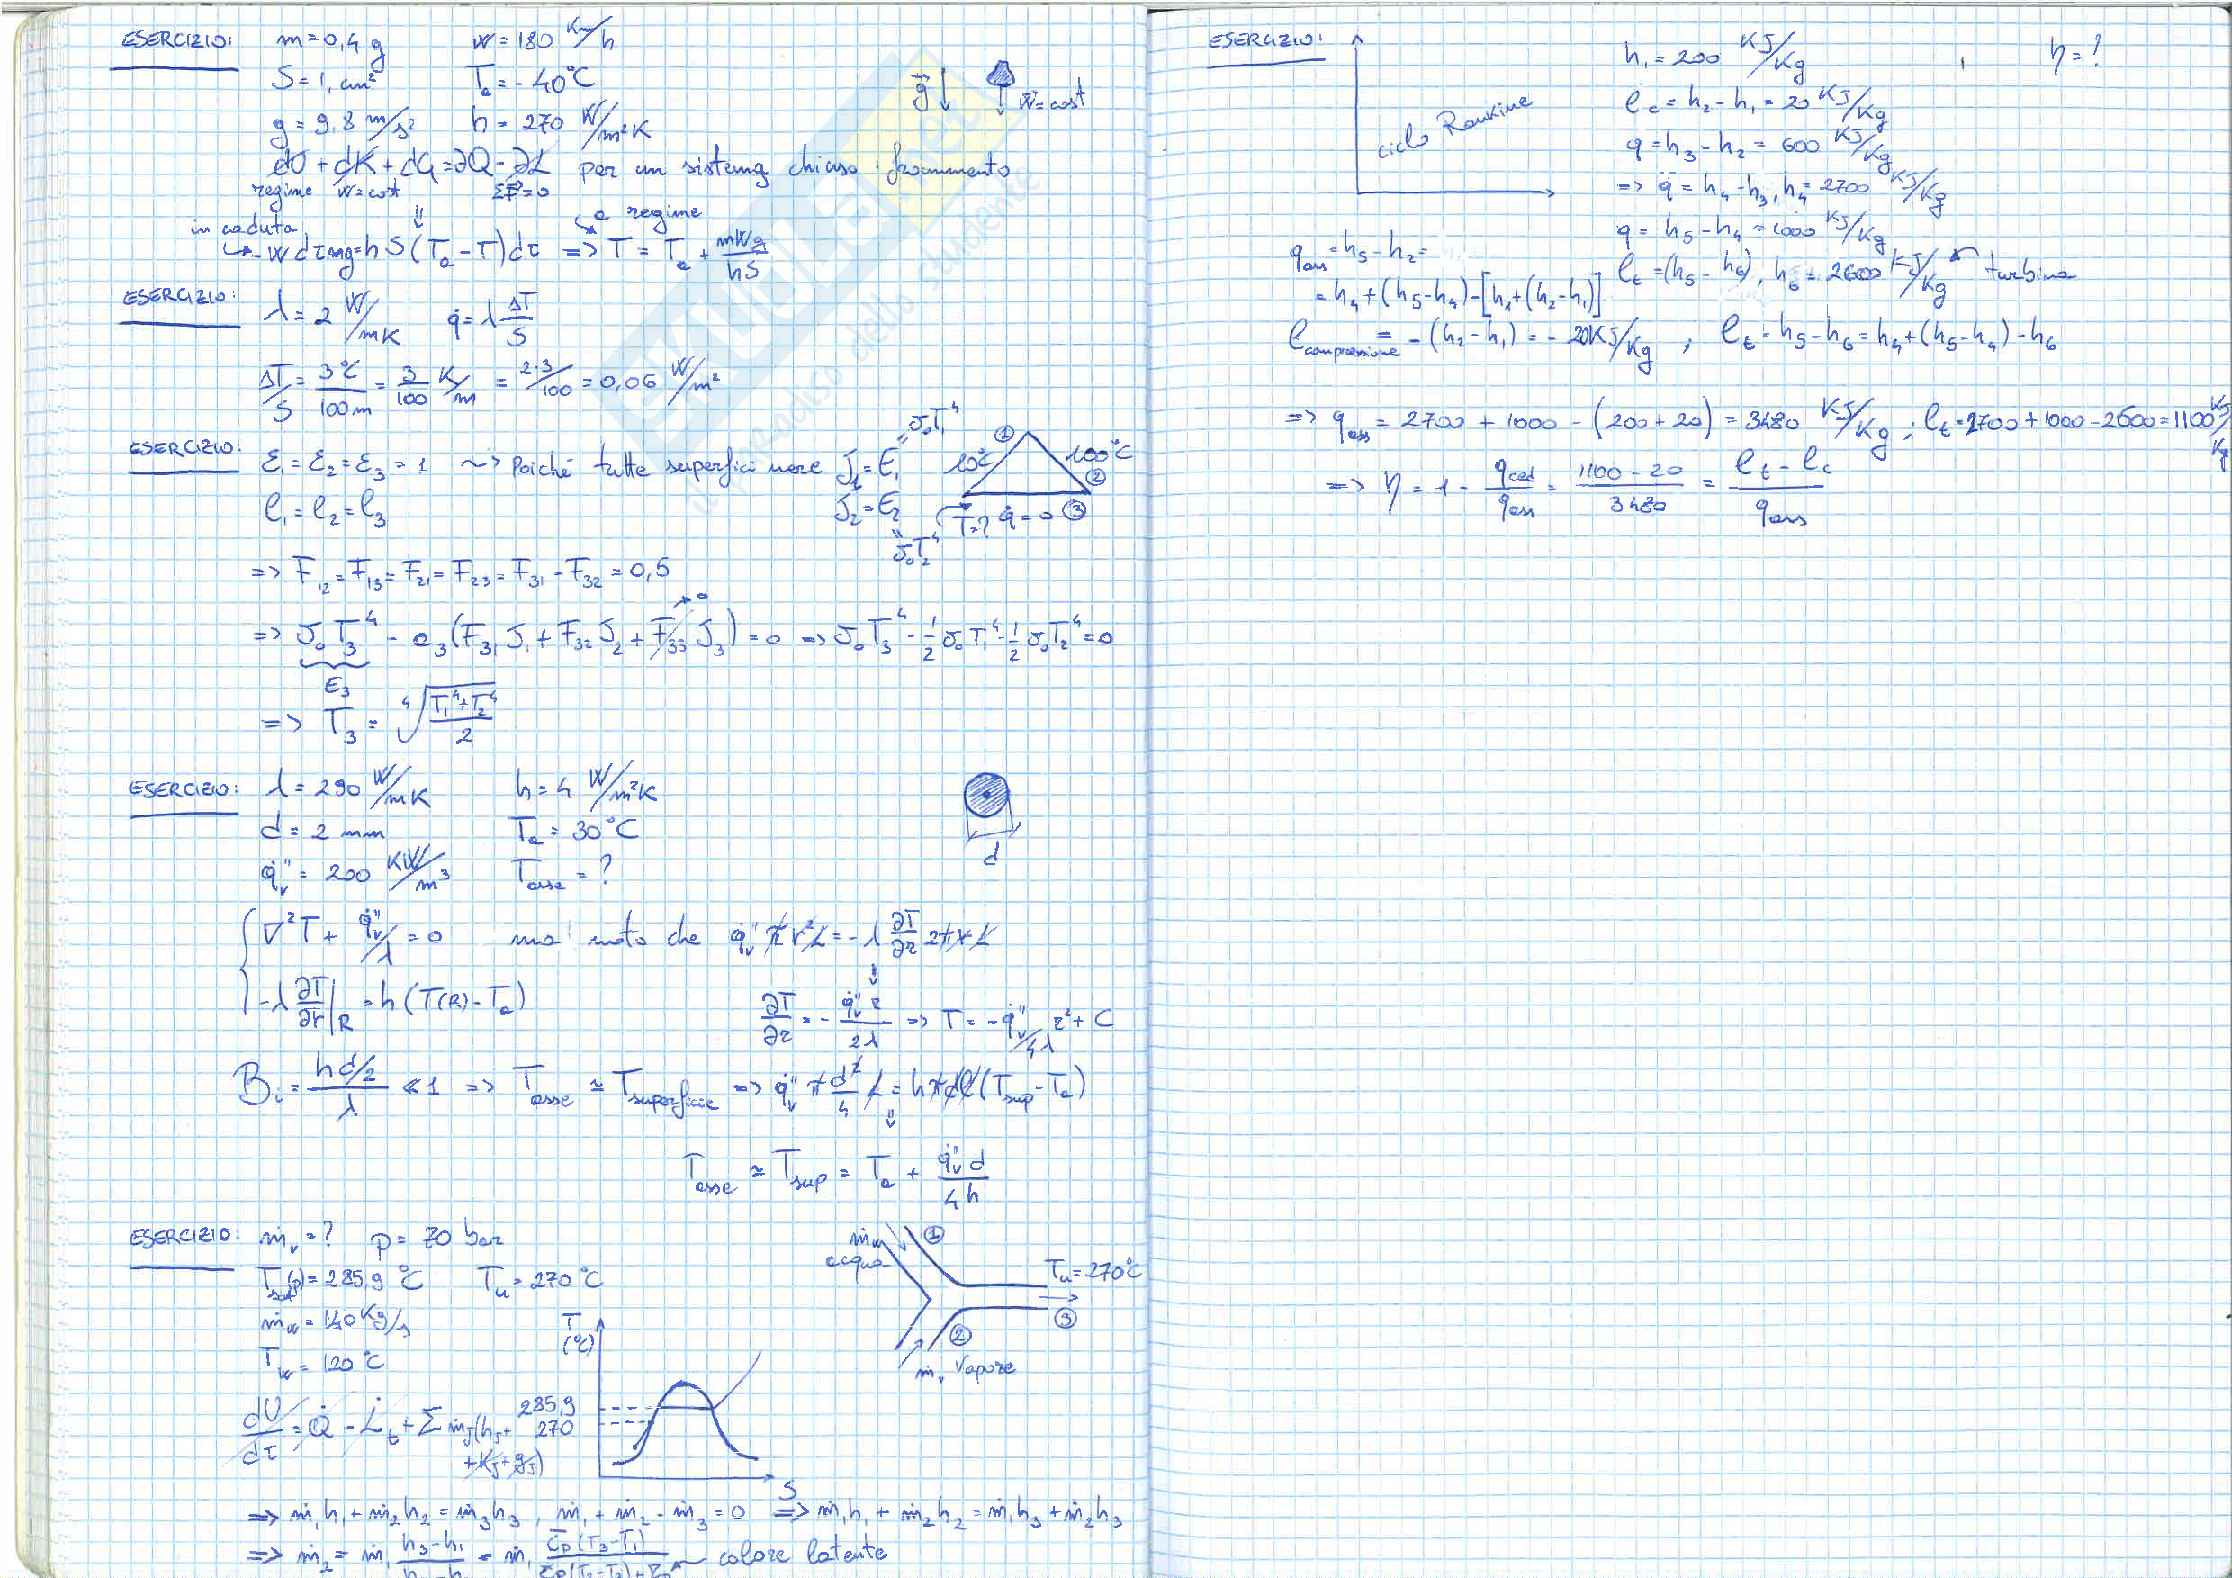 ESERCIZIO: m = 0,4 g W = 180 Km/h
S = 1, cm² Ta = -40°C
g = 9,8 m/s² h = 270 W/m²K
g W = cost
dU + dK + dG = ∂Q - ∂L per un sistema chiuso:
regime W = cost ΣF = 0
in caduta a regime
-W dτ mg = h S (Ta - T) dτ => T = Ta + mWg/hS
ESERCIZIO: λ = 2 W/mK q = λ ΔT/S
ΔT/S = 3°C/100m = 3/100 K/m = 2·3/100 = 0,06 W/m²
ESERCIZIO: ε1 = ε2 = ε3 = 1 ~> Poiché tutte superfici nere J1 = E1 = σ0T1⁴
l1 = l2 = l3 J2 = E2 = σ0T2⁴
① 10°C 100°C ② T=? q = 0 ③
=> F12 = F13 = F21 = F23 = F31 = F32 = 0,5
=> σ0T3⁴ - a3 (F31 J1 + F32 J2 + F33 J3) = 0 => σ0T3⁴ - 1/2 σ0T1⁴ - 1/2 σ0T2⁴ = 0
E3
=> T3 = ⁴√((T1⁴+T2⁴)/2)
ESERCIZIO: λ = 290 W/mK h = 4 W/m²K
d = 2 mm Ta = 30°C
q̇v'' = 200 KW/m³ Tasse = ?
d
∇²T + q̇v''/λ = 0 ma noto che q̇v'' π r² L = -λ ∂T/∂r 2πrL
-λ ∂T/∂r|R = h (T(R) - Ta) ∂T/∂r = - q̇v'' r/2λ => T = -q̇v''/4λ r² + C
Bi = (h d/2)/λ ≪ 1 => Tasse ≃ Tsuperficie => q̇v'' π d²/4 L = h π d L (Tsup - Ta)
Tasse ≃ Tsup = Ta + q̇v'' d/4h
ESERCIZIO: ṁv = ? p = 70 bar
Tsat(p) = 285,9 °C Tu = 270°C
ṁw = 140 Kg/s
Tw = 120°C
ṁw acqua ① Tu = 270°C
② ③
ṁv Vapore
T (°C)
285,9
270
S
dU/dτ = Q̇ - L̇t + Σ ṁJ (hJ + KJ + gJ)
=> ṁ1h1 + ṁ2h2 = ṁ3h3, ṁ1 + ṁ2 - ṁ3 = 0 => ṁ1h1 + ṁ2h2 = ṁ1h3 + ṁ2h3
=> ṁ2 = ṁ1 (h3 - h1) = ṁ1 c̄p (T3 - T1) calore latente
ESERCIZIO: h1 = 200 KJ/Kg η = ?
ciclo Rankine
lc = h2 - h1 = 20 KJ/Kg
q = h3 - h2 = 600 KJ/Kg
=> q = h4 - h3, h4 = 2700 KJ/Kg
q = h5 - h4 = 1000 KJ/Kg
qass = h5 - h2 = lt = (h5 - h6), h6 = 2600 KJ/Kg turbina
= h4 + (h5 - h4) - [h1 + (h2 - h1)]
lcompressione = - (h2 - h1) = - 20 KJ/Kg ; lt = h5 - h6 = h4 + (h5 - h4) - h6
=> qass = 2700 + 1000 - (200 + 20) = 3480 KJ/Kg ; lt = 2700 + 1000 - 2600 = 1100 KJ/Kg
=> η = 1 - qced/qass = (1100 - 20)/3480 = (lt - lc)/qass